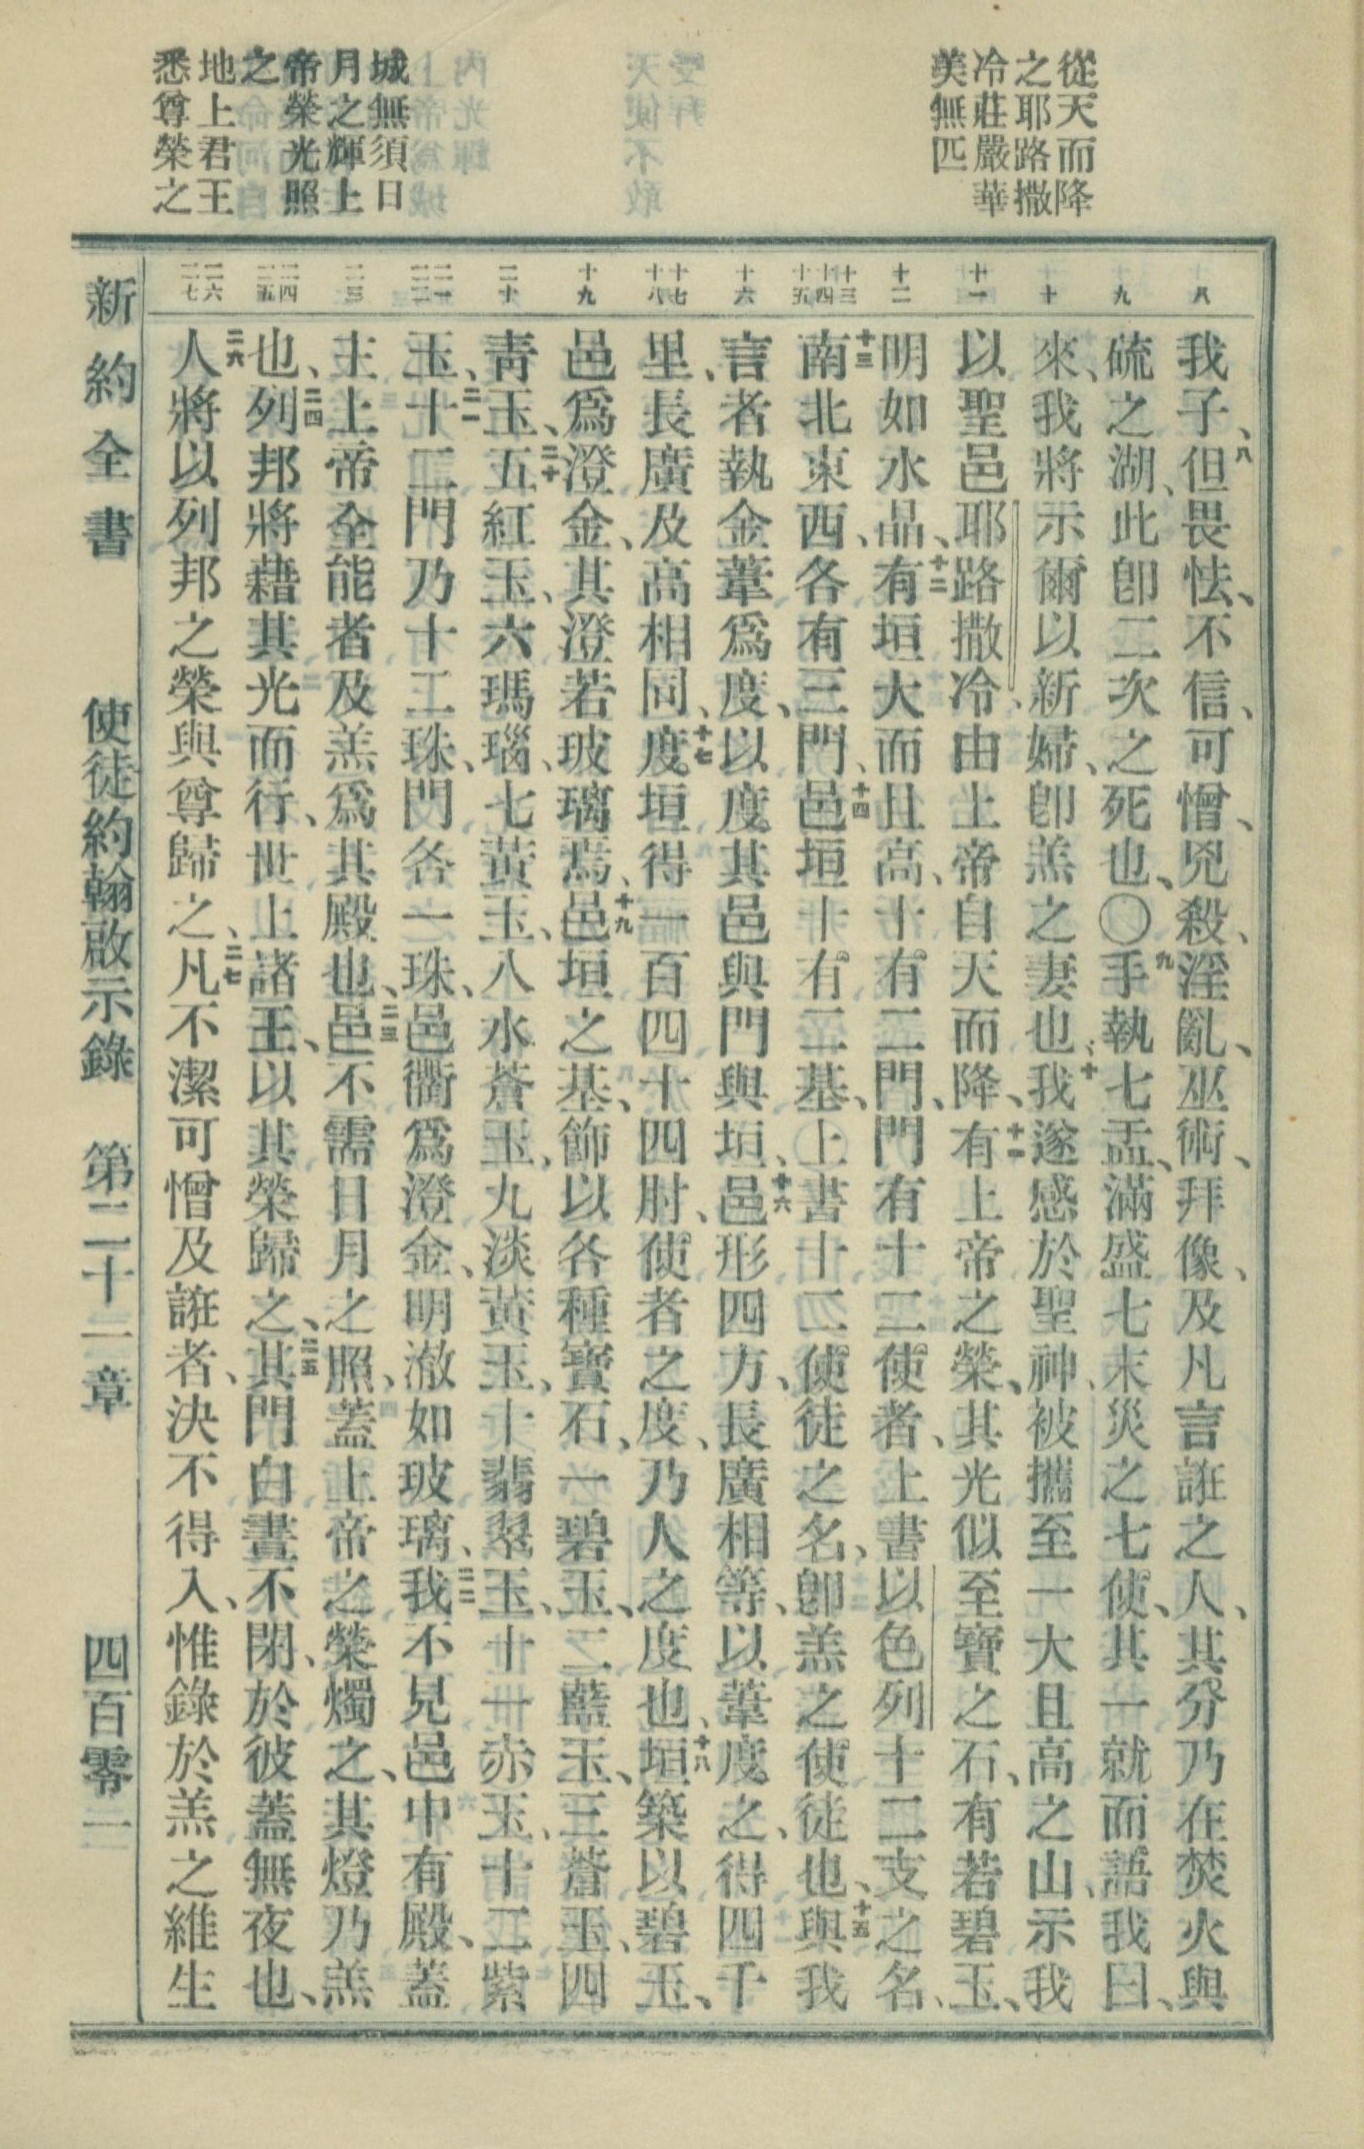 從天而降
之耶路撒
冷莊嚴華
美無匹
城無須日
月之輝上
帝榮光照
之
地上君王
悉尊榮之
八
九
十
十一
十二
十三
十四
十五
十六
十七
十八
十九
二十
二一
二二
二三
二四
二五
二六
二七
我子、八但畏怯、不信、可憎、兇殺、淫亂、巫術、拜像、及凡言誑之人、其分乃在焚火與
硫之湖、此卽二次之死也、〇九手執七盂、滿盛七末災之七使、其一就而語我曰、
來、我將示爾以新婦、卽羔之妻也、十我遂感於聖神、被攜至一大且高之山、示我
以聖邑耶路撒冷、由上帝自天而降、十一有上帝之榮、其光似至寶之石、有若碧玉、
明如水晶、十二有垣大而且高、十有二門、門有十二使者、上書以色列十二支之名、
十三南北東西、各有三門、十四邑垣十有二基、上書十二使徒之名、卽羔之使徒也、十五與我
言者執金葦爲度、以度其邑與門與垣、十六邑形四方、長廣相等、以葦度之、得四千
里、長廣及高相同、十七度垣得一百四十四肘、使者之度、乃人之度也、十八垣築以碧玉、
邑爲澄金、其澄若玻璃焉、十九邑垣之基、飾以各種寶石、一碧玉、二藍玉、三蒼玉、四
靑玉、二十五紅玉、六瑪瑙、七黃玉、八水蒼玉、九淡黃玉、十翡翠玉、十一赤玉、十二紫
玉、二一十二門乃十二珠、門各一珠、邑衢爲澄金、明澈如玻璃、二二我不見邑中有殿、蓋
主上帝全能者及羔爲其殿也、二三邑不需日月之照、蓋上帝之榮燭之、其燈乃羔
也、二四列邦將藉其光而行、世上諸王、以其榮歸之、二五其門白晝不閉、於彼蓋無夜也、
二六人將以列邦之榮與尊歸之、二七凡不潔可憎及誑者、決不得入、惟錄於羔之維生
新約全書 使徒約翰啟示錄 第二十一章 四百零一